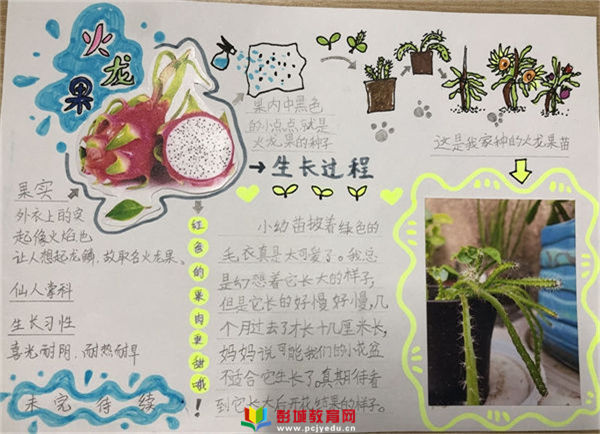 火龙果
果内中黑色
的小点点就是
火龙果的种子
→生长过程
这是我家种的火龙果苗
果实
外衣上的突
起像火焰也
让人想起龙鳞,故取名火龙果、
仙人掌科
生长习性
喜光耐阴、耐热耐旱
未完待续
红色的果肉更甜哦!
小幼苗披着绿色的
毛衣真是太可爱了。我总
是幻想着它长大的样子,
但是它长的好慢好慢,几
个月过去了才长十几厘米长,
妈妈说可能我们的小花盆
不适合它生长了。真期待看
到它长大后开花结果的样子。
彭城教育网
www.pcjyedu.cn